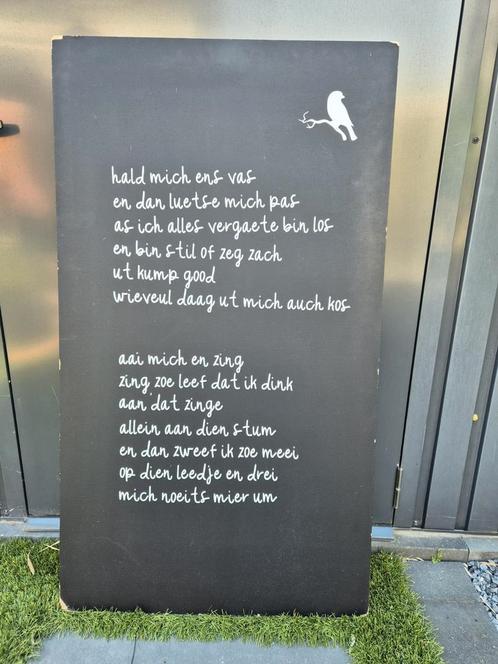 hald mich ens vas
en dan luetse mich pas
as ich alles vergaete bin los
en bin stil of zeg zach
ut kump good
wieveul daag ut mich auch kos
aai mich en zing
zing zoe leef dat ik dink
aan dat zinge
allein aan dien stum
en dan zweef ik zoe meei
op dien leedje en drei
mich noeits mier um